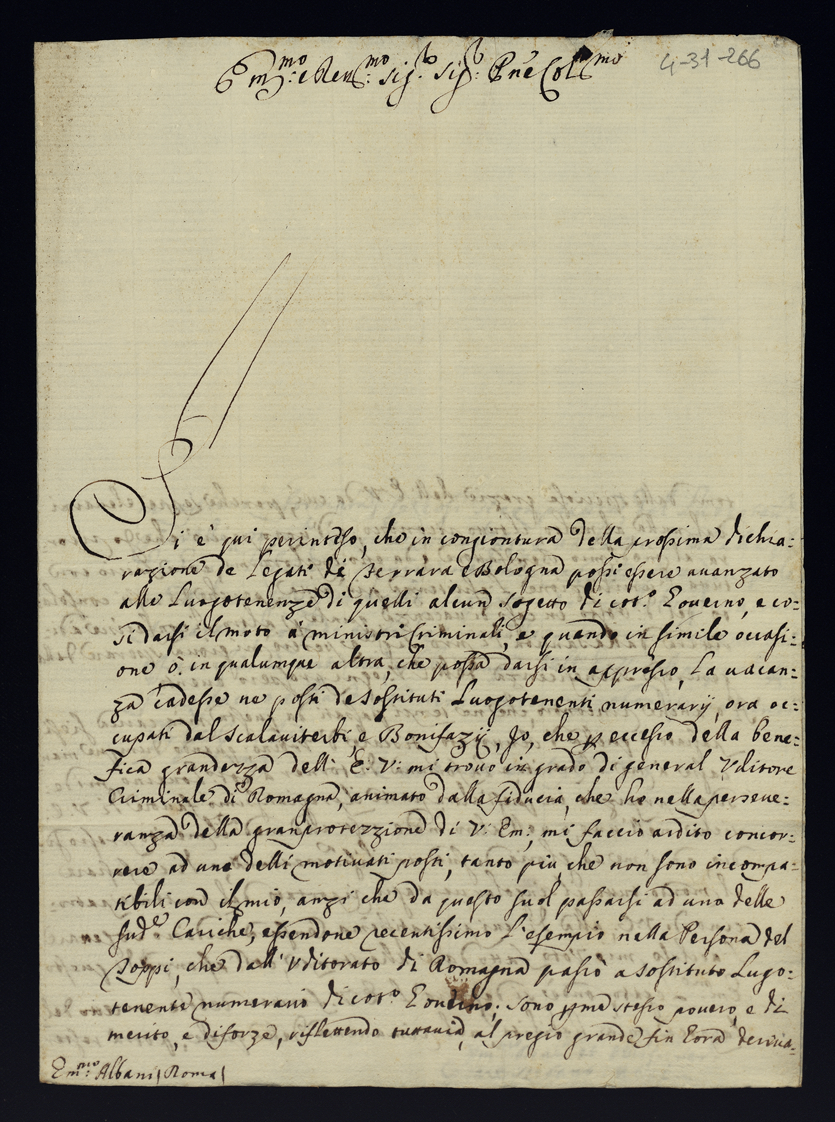 Emmo: e Revmo: Sigr: Sigr: Pne Colmo
4-31-266
Si è qui perinteso, che in congiontura della prossima dichia:
razione de Legati di Ferrara e Bologna possi essere avanzato
alle Luogotenenze di quelli alcun sogetto di cot:o Governo, e co:
sì darsi il moto à ministri Criminali, e quando in simile occasi:
one ò in qualumque altra, che possa darsi in appresso, la vacan:
za cadesse ne posti de Sostituti Luogotenenti numerarij, ora oc:
cupati dal Scalaviterbi e Bonifazij, Jo, che p eccesso della bene:
fica grandezza dell' E: V: mi trovo in grado di general Vditore
Criminale di Romagna, animato dalla fiducia, che ho nella perseve:
ranza della gran protezzione di V: Em:, mi faccio ardito concor:
rere ad uno delli motivati posti, tanto più, che non sono incompa:
tibili con il mio, anzi che da questo suol passarsi ad una delle
sudte Cariche, essendone recentissimo l'esempio nella Persona del
Zoppi, che dall' Vditorato di Romagna passò a Sostituto Lugo:
tenente numerario di cot:o Governo; sono p me stesso povero, e di
merito, e di forze, riflettendo tuttavia, al pregio grande fin hora deriva:
Emmo: Albani (Roma)